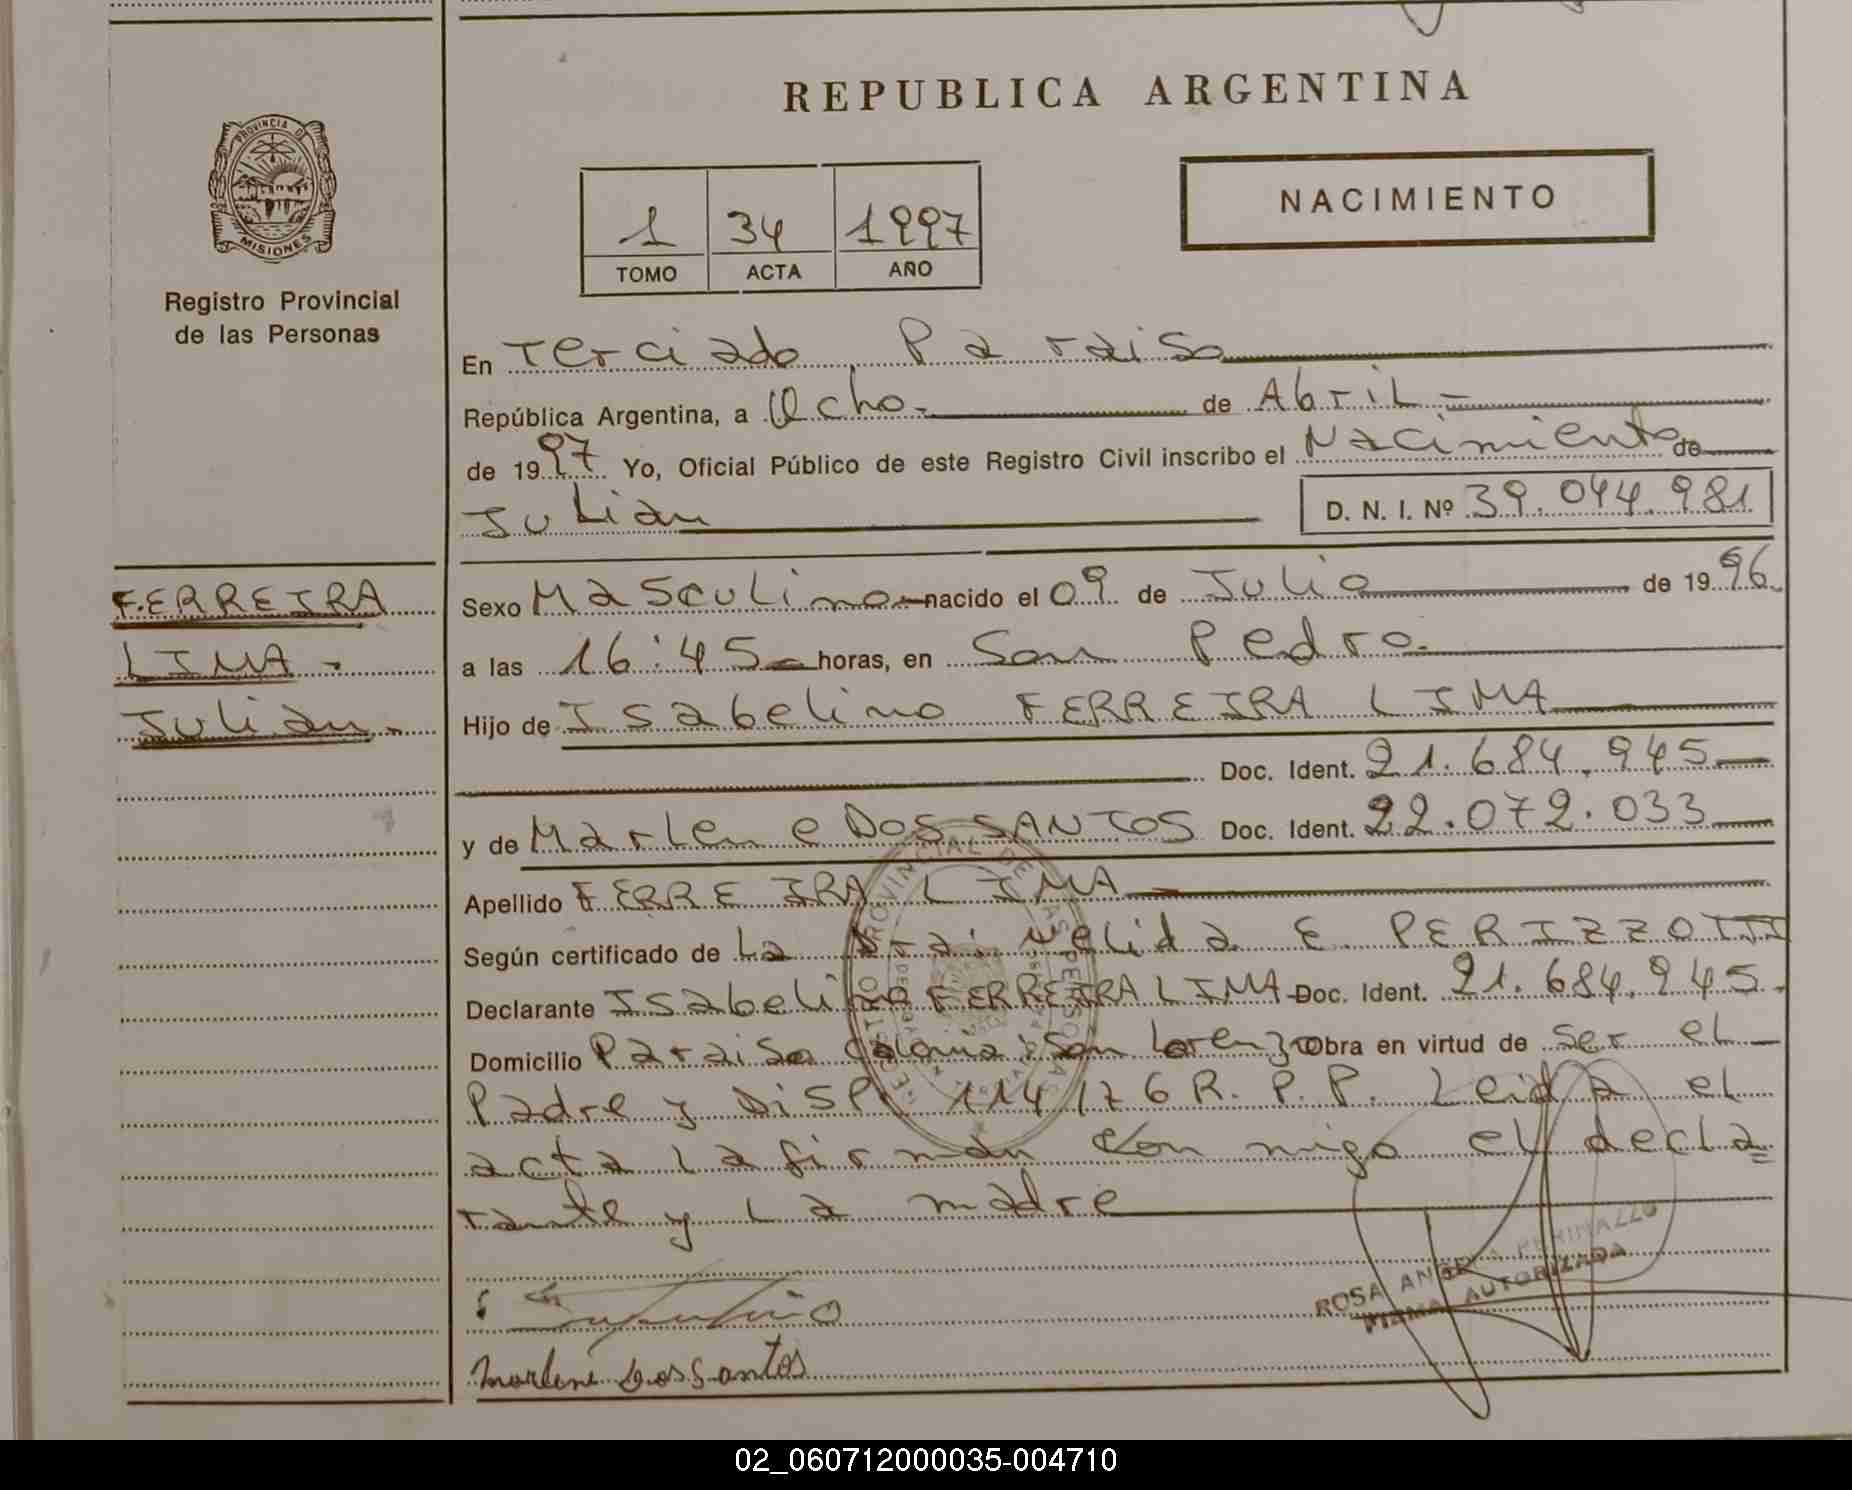 REPUBLICA ARGENTINA
PROVINCIA D
MISIONES
Registro Provincial
de las Personas
1 34 1997
TOMO ACTA AÑO
NACIMIENTO
En Terciado Paraiso
República Argentina, a Ocho.- de Abril -
de 1997 Yo, Oficial Público de este Registro Civil inscribo el Nacimiento de
Julian D. N. I. Nº 39.044.981
FERREIRA
LIMA -
Julian.-
Sexo Masculino nacido el 09 de Julio de 1996.
a las 16:45 horas, en San Pedro.
Hijo de Isabelino FERREIRA LIMA
Doc. Ident. 21.684.945
y de Marlene DOS SANTOS Doc. Ident. 22.072.033
Apellido FERREIRA LIMA
Según certificado de La Dra: Nelida E. PERIZZOTTI
Declarante Isabelino FERREIRA LIMA Doc. Ident. 21.684.945.
Domicilio Paraiso Colonia: San Lorenzo Obra en virtud de ser el
Padre y Disp. 114/76 R. P. P. Leida el
acta la firman con migo el decla
rante y la madre
ROSA
FIRMA AUTORIZADA
Marlene Dos Santos
REGISTRO PROVINCIAL DE LAS PERSONAS
02_060712000035-004710